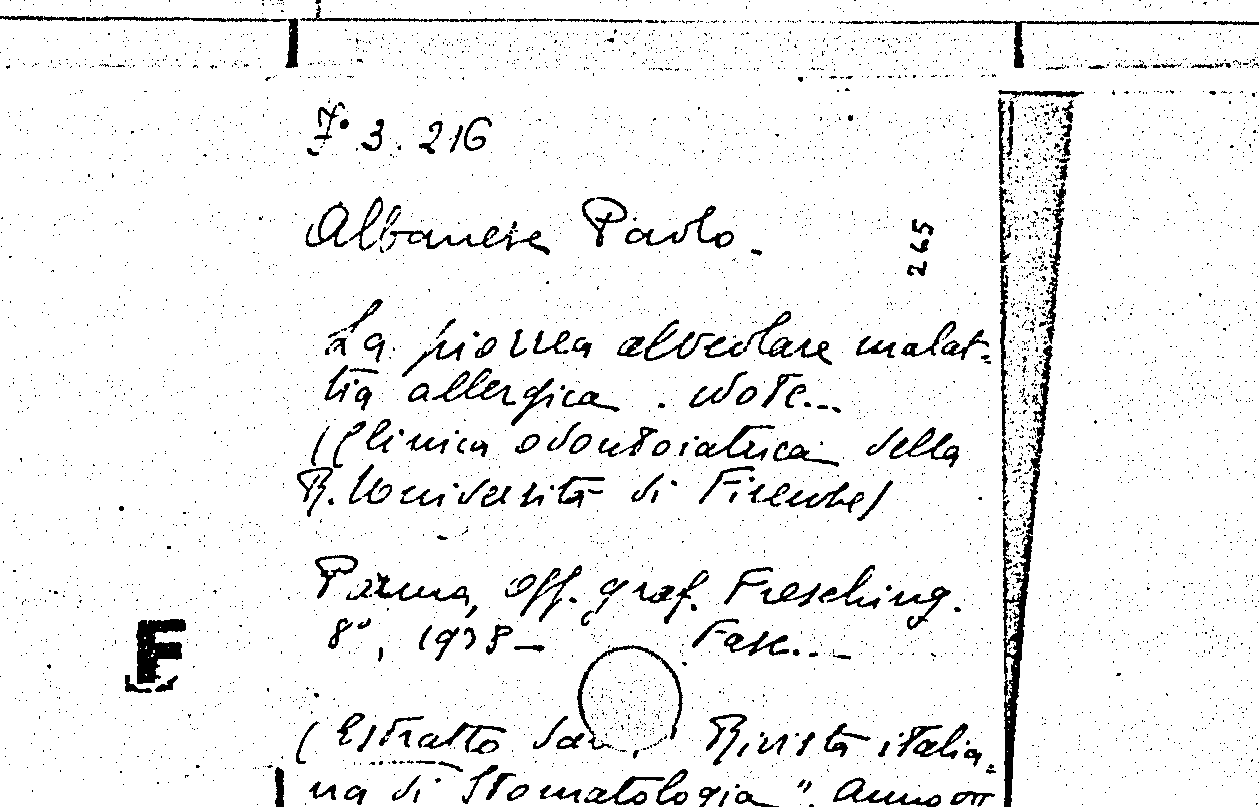 F. 3. 216
Albanese Paolo.
265
La piorrea alveolare malat-
tia allergica. Note...
(Clinica odontoiatrica della
R. Università di Firenze)
Parma, Off. graf. Fresching.
8°, 1938 – Fasc...
F
(Estratto da: Rivista italia-
na di Stomatologia". Anno